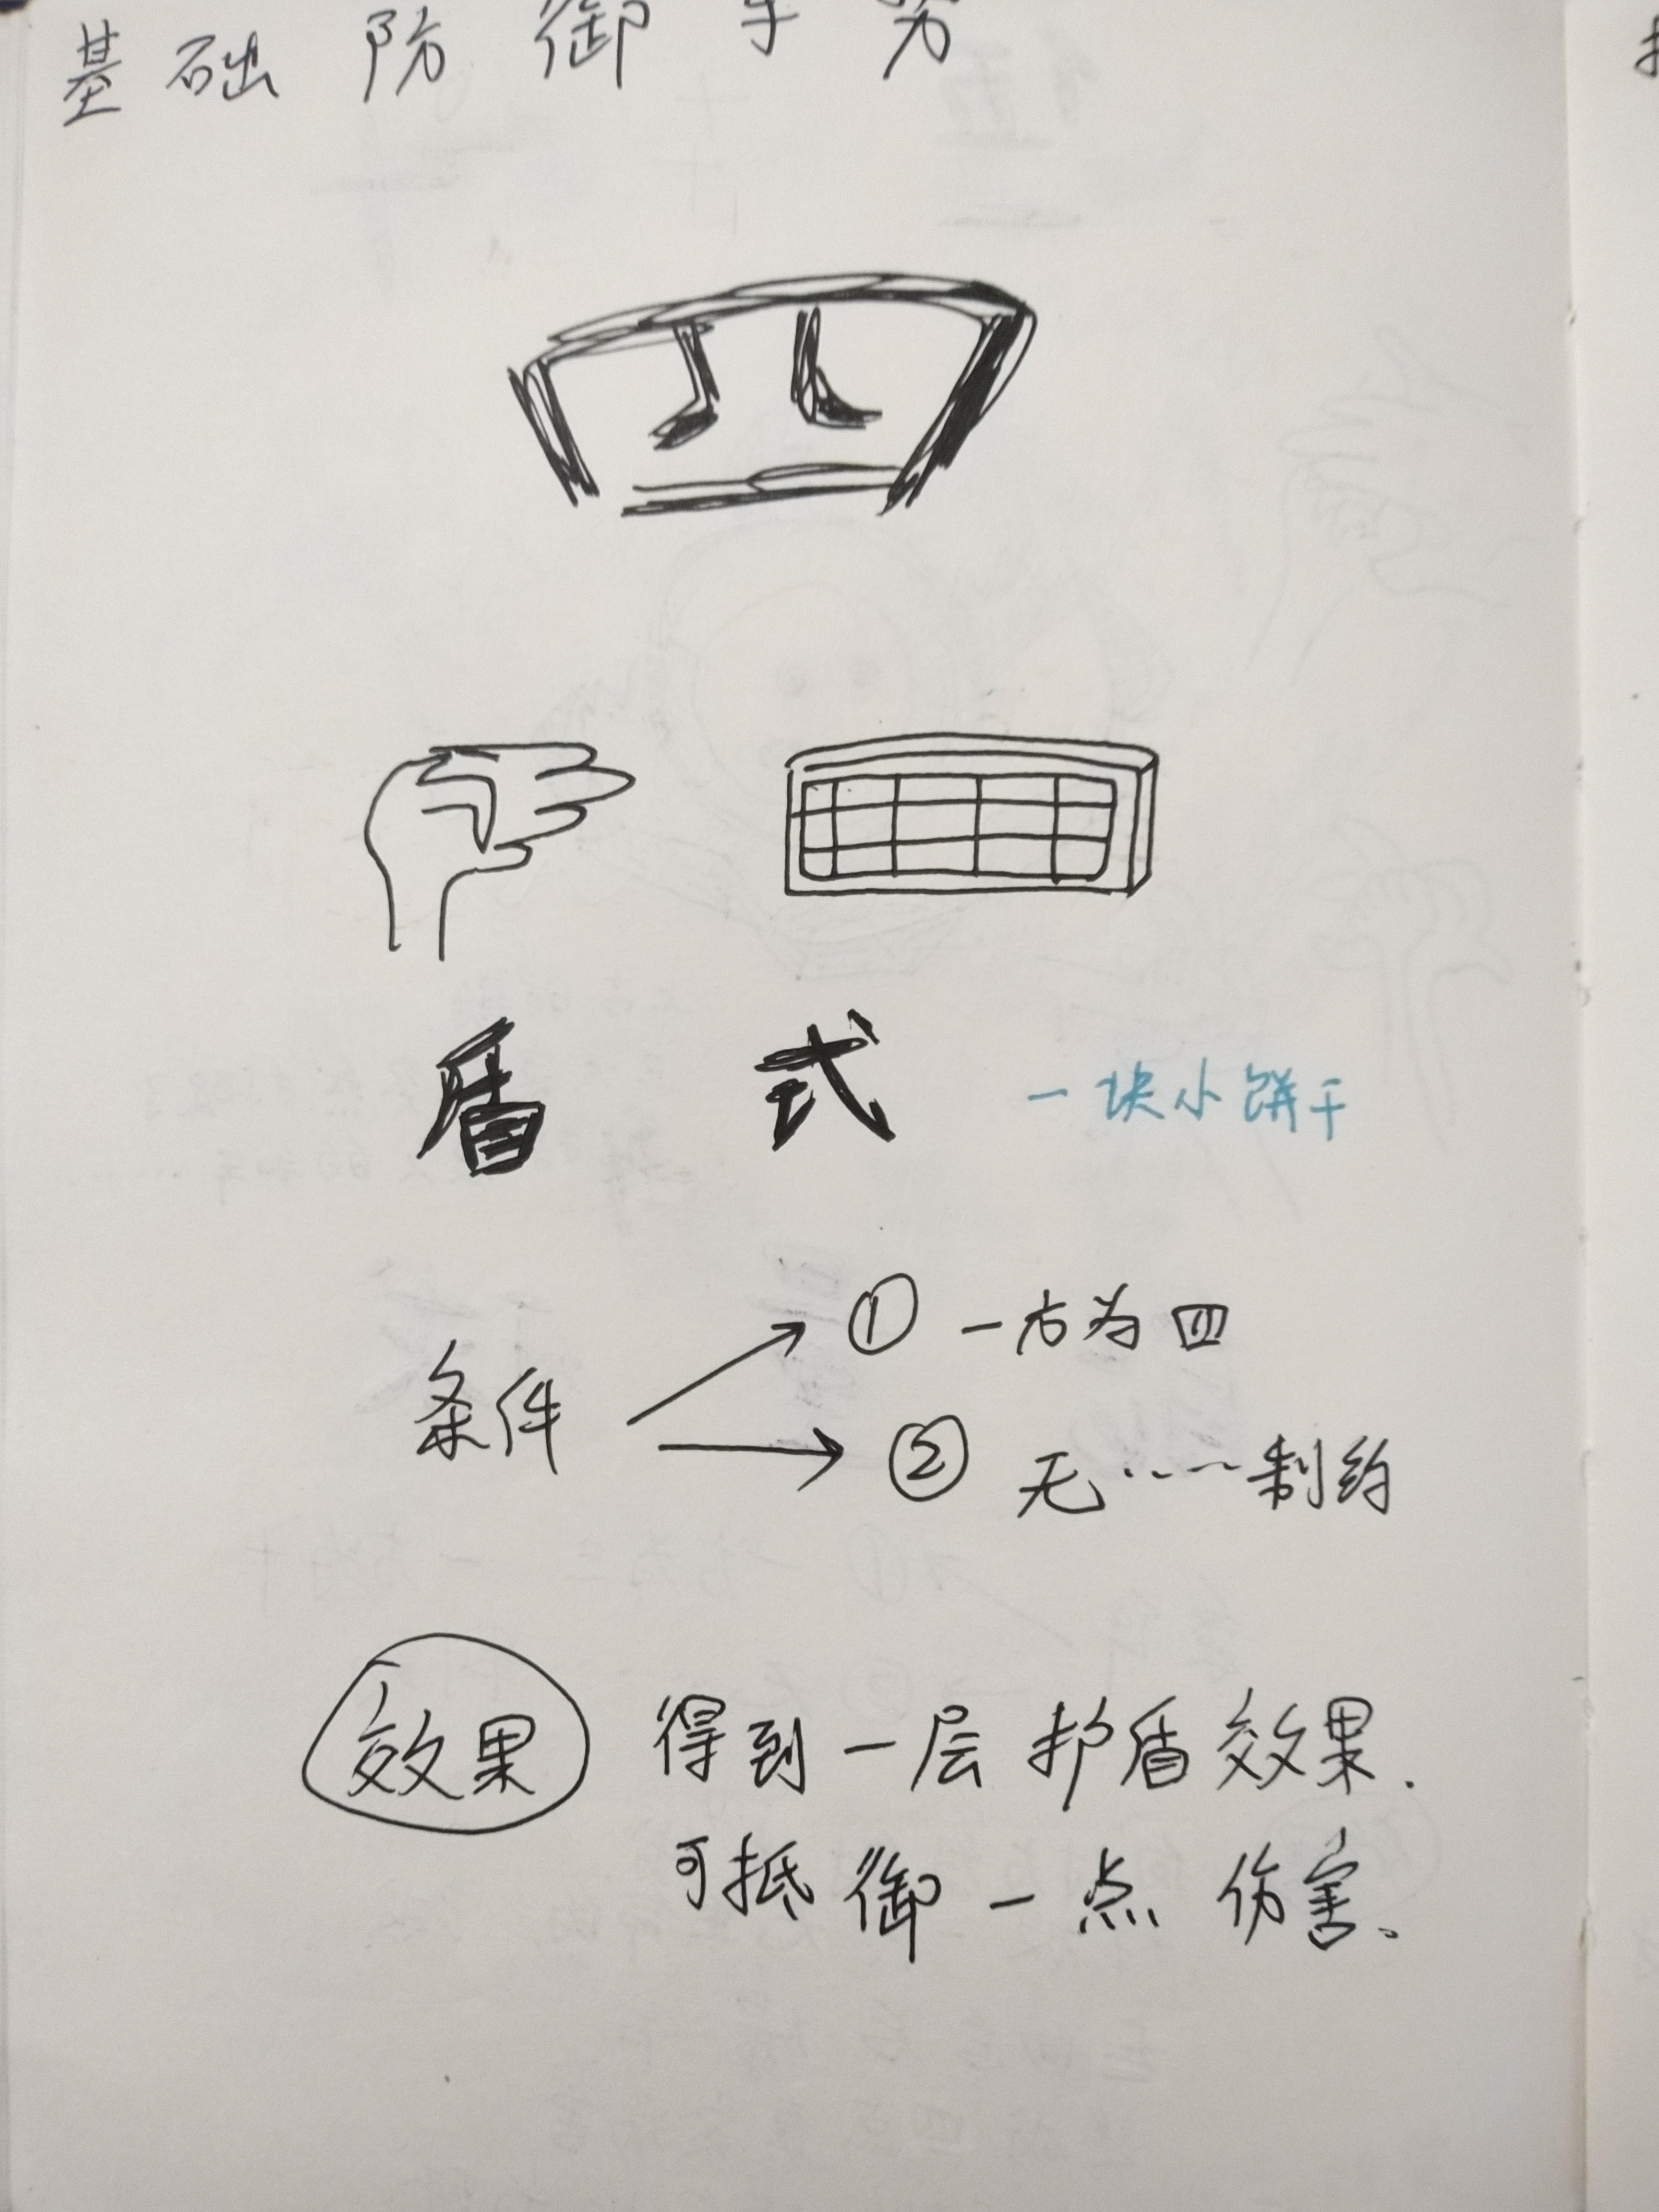 基础防御手势
四
盾式 一块小饼干
条件 ① 一方为四
② 无……制约
效果 得到一层护盾效果.
可抵御一点伤害、